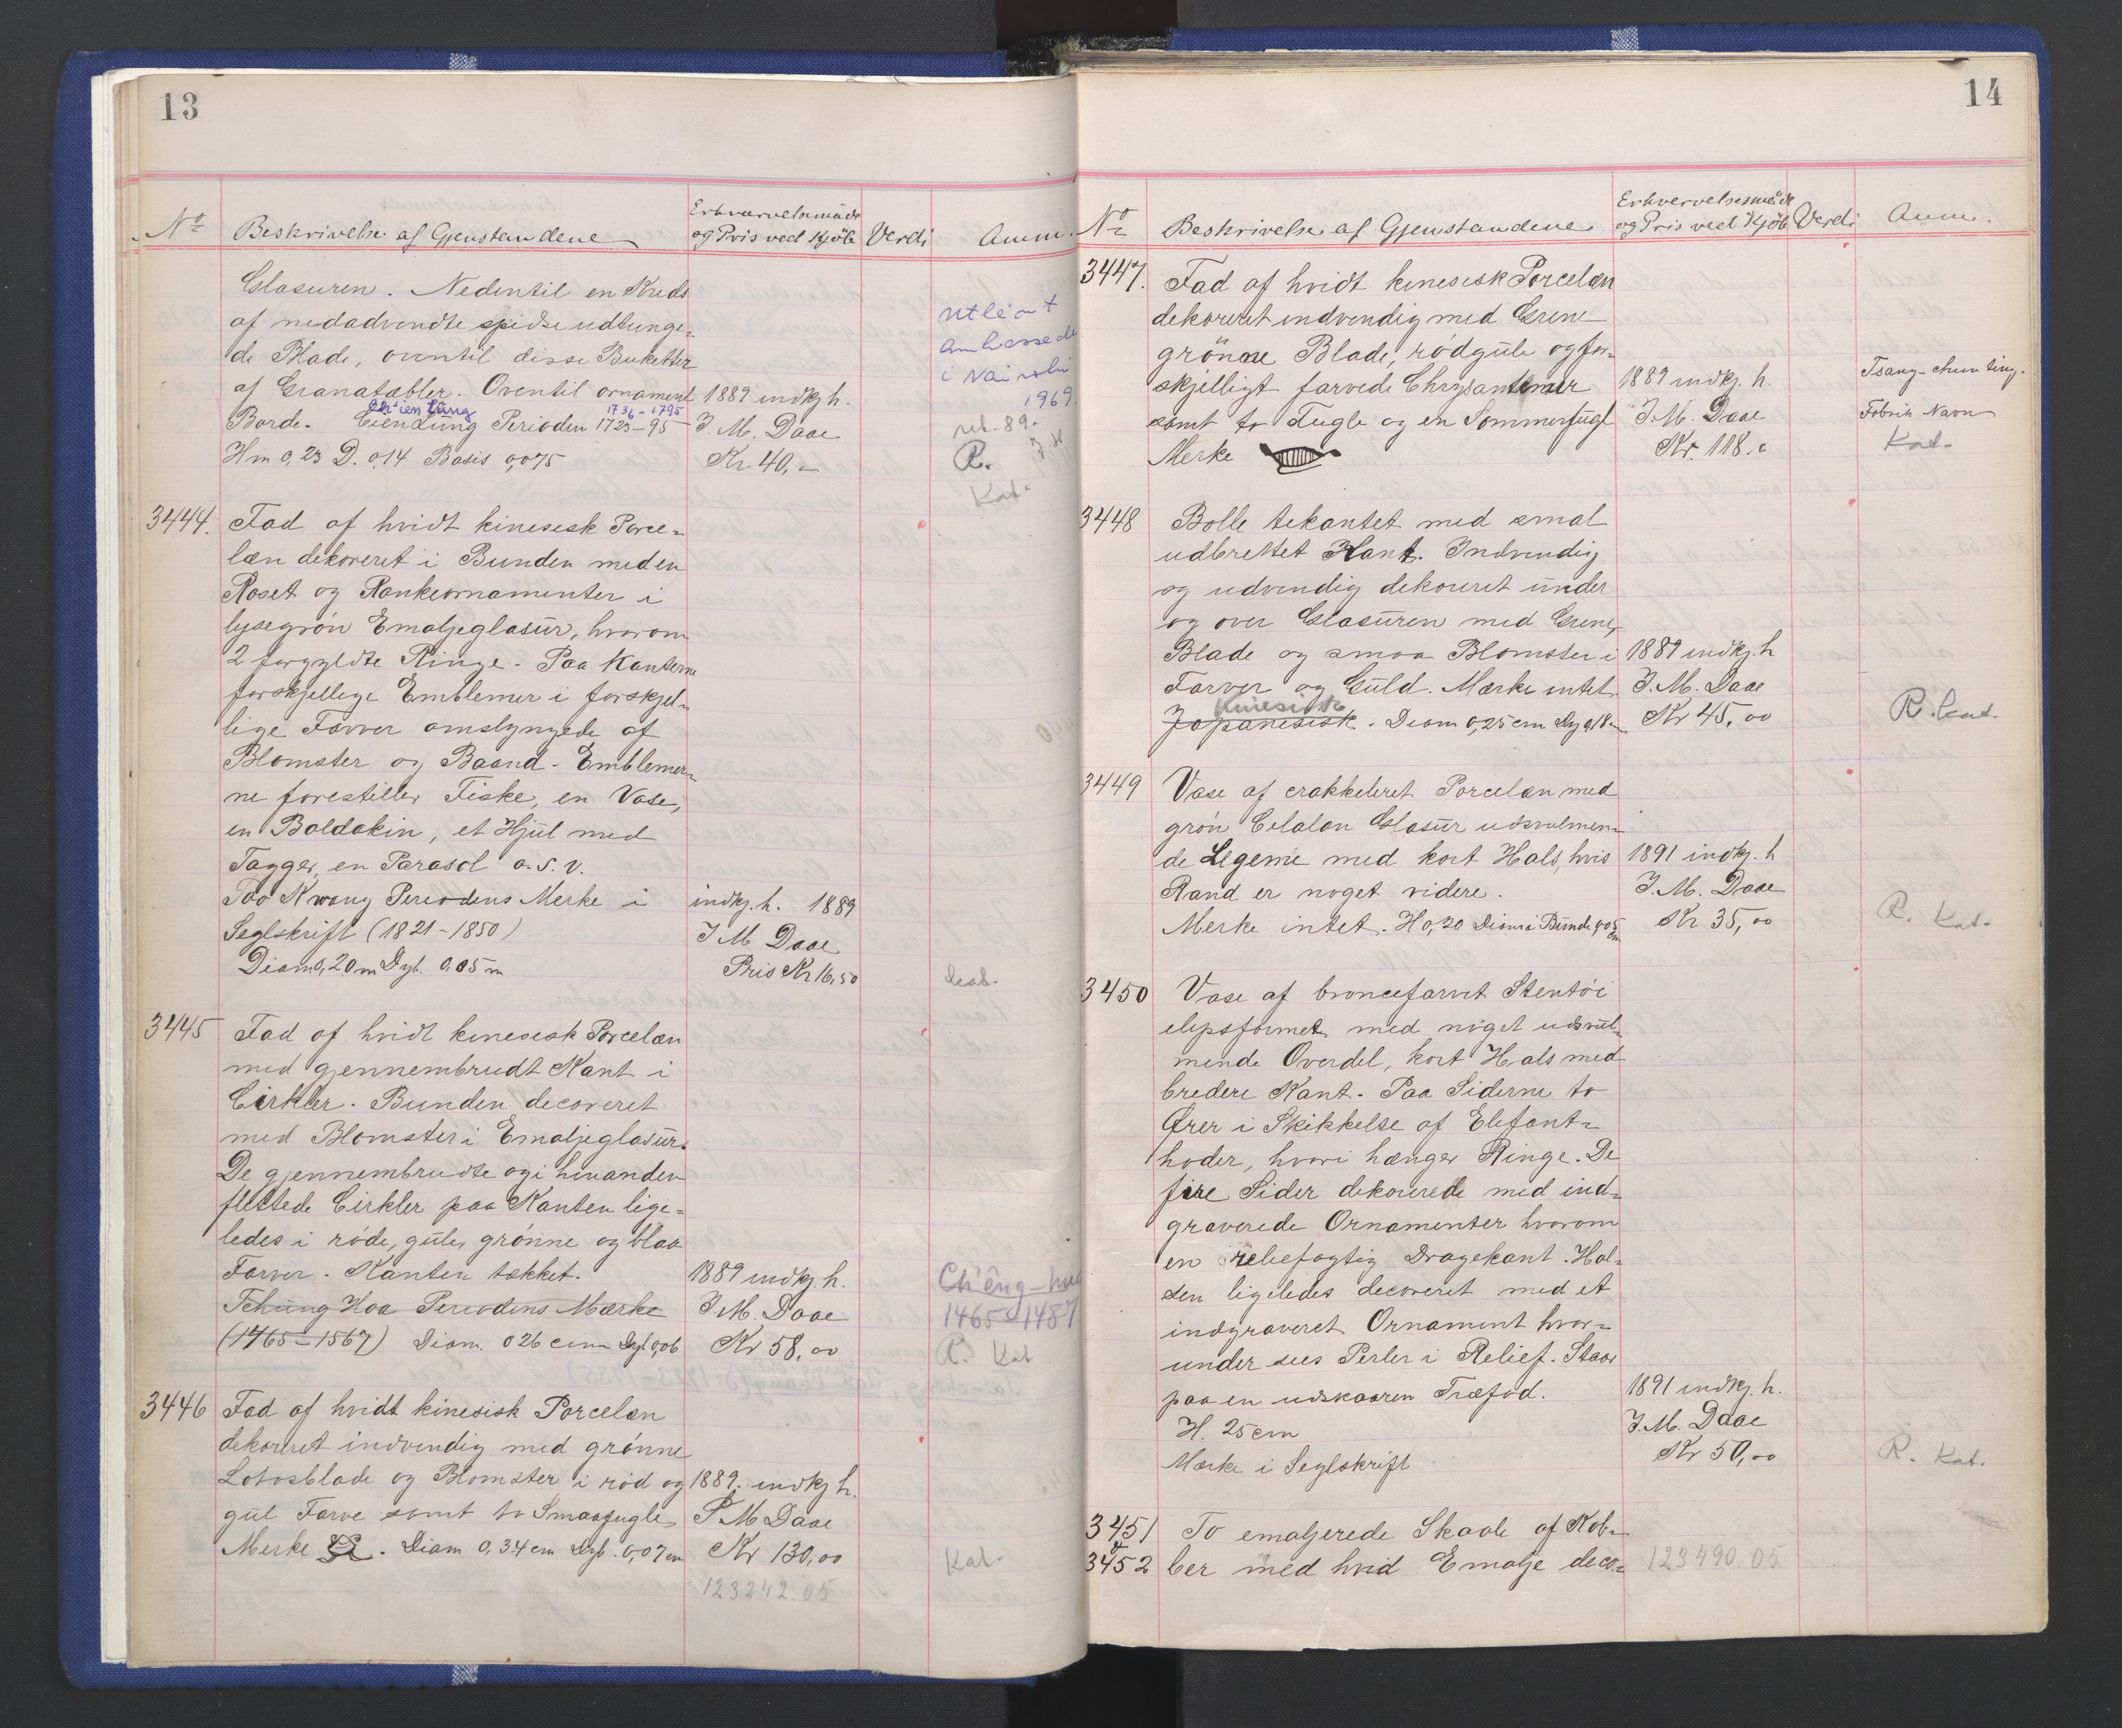 13
No
Beskrivelse af Gjenstandene
Erhvervelsesmåde
og Pris ved Kjöb
Verdi
Anm.
Glasuren. Nedentil en Kreds
af nedadvendte spidse udtunge-
de Blade, oventil disse Buketter
af Granatæbler. Oventil ornament
Borde. Ch'ien Lung Perioden 1725-95
1736-1795
Hm 0,23 D. 0,14 Basis 0,075
1889 indkj h.
J. M. Daae
Kr 40,-
Utlånt
ambassade
i Nairobi
1969.
ret. 89.
R.
Kat.
3444.
Fad af hvidt kinesisk Porce-
læn dekoreret i Bunden med en
Roset og Rankeornamenter i
lysegrøn Emaljeglasur, hvorom
2 forgyldte Ringe. Paa Kanterne
forskjellige Emblemer i forskjel-
lige Farver omslyngede af
Blomster og Baand. Emblemer-
ne forestiller Fiske, en Vase,
en Baldakin, et Hjul med
Tagger, en Parasol o. s. v.
Tao Kwang Periodens Merke i
Seglskrift (1821-1850)
Diam 0,20 m Dyb. 0,05 m
indkj. h. 1889
J M Daae
Pris Kr 16,50
Kat.
3445
Fad af hvidt kinesisk Porcelæn
med gjennembrudt Kant i
Cirkler. Bunden decoreret
med Blomster i Emaljeglasur.
De gjennembrudte og i hinanden
flettede Cirkler paa Kanten lige-
ledes i røde, gule, grønne og blaa
Farver. Kanten takket.
Tchung Hoa Periodens Mærke
(1465-1567) Diam. 0 26 cm Dyb 0,06
1889 indkj. h.
J. M. Daae
Kr 58,00
Ch'êng-hua
1465-1487
R. Kat
3446
Fad af hvidt kinesisk Porcelæn
dekoreret indvendig med grønne
Lotosblade og Blomster i rød og
gul Farve samt to Smaafugle
Merke . Diam 0,34 cm Dyb. 0,07 cm
1889. indkj h.
J M Daae
Kr 130,00
Kat.
123242.05
14
No
Beskrivelse af Gjenstandene
Erhvervelsesmåde
og Pris ved Kjöb
Verdi
Anm.
3447.
Fad af hvidt kinesisk Porcelæn
dekoreret indvendig med Grene
grönne Blade, rödgule og for-
skjelligt farvede Chrysantemer
samt to Fugle og en Sommerfugl
Merke
1889 indkj. h.
J. M. Daae
Kr. 118,0
Tsang-chun ting.
Fabrik Navn
Kat.
3448
Bolle tekantet med smal
udbrettet Kant. Indvendig
og udvendig dekoreret under
og over Glasuren med Grene,
Blade og smaa Blomster i
Farver og Guld. Mærke intet.
Kinesisk
Japanesisk. Diam 0,25 cm Dyb 0,18 m
1889 indkj. h
J. M. Daae
Kr 45,00
R. Kat.
3449
Vase af crakkeleret Porcelæn med
grøn Celalon Glasur udsvulmen-
de Legeme med kort Hals, hvis
Rand er noget videre.
Merke intet. H 0,20 Diam i Bunde 0,05 cm
1891 indkj. h
J. M. Daae
Kr 35,00
R. Kat.
3450
Vase af broncefarvet Stentöi
elipsformet med noget udsvul-
mende Overdel, kort Hals med
bredere Kant. Paa Siderne to
Ører i Skikkelse af Elefant-
hoder, hvori hænger Ringe. De
fire Sider dekorerede med ind-
graverede Ornamenter hvorom
en reliefagtig Dragekant. Hal-
sen ligeledes decoreret med et
indgraveret Ornament hvor-
under sees Perler i Relief. Staar
paa en udskaaren Træfod.
H. 25 cm
Mærke i Seglskrift
1891 indkj. h.
J. M. Daae
Kr 50,00
R. Kat.
3451
&
3452
To emaljerede Skaale af Kob-
ber med hvid Emalje deco-
123490.05